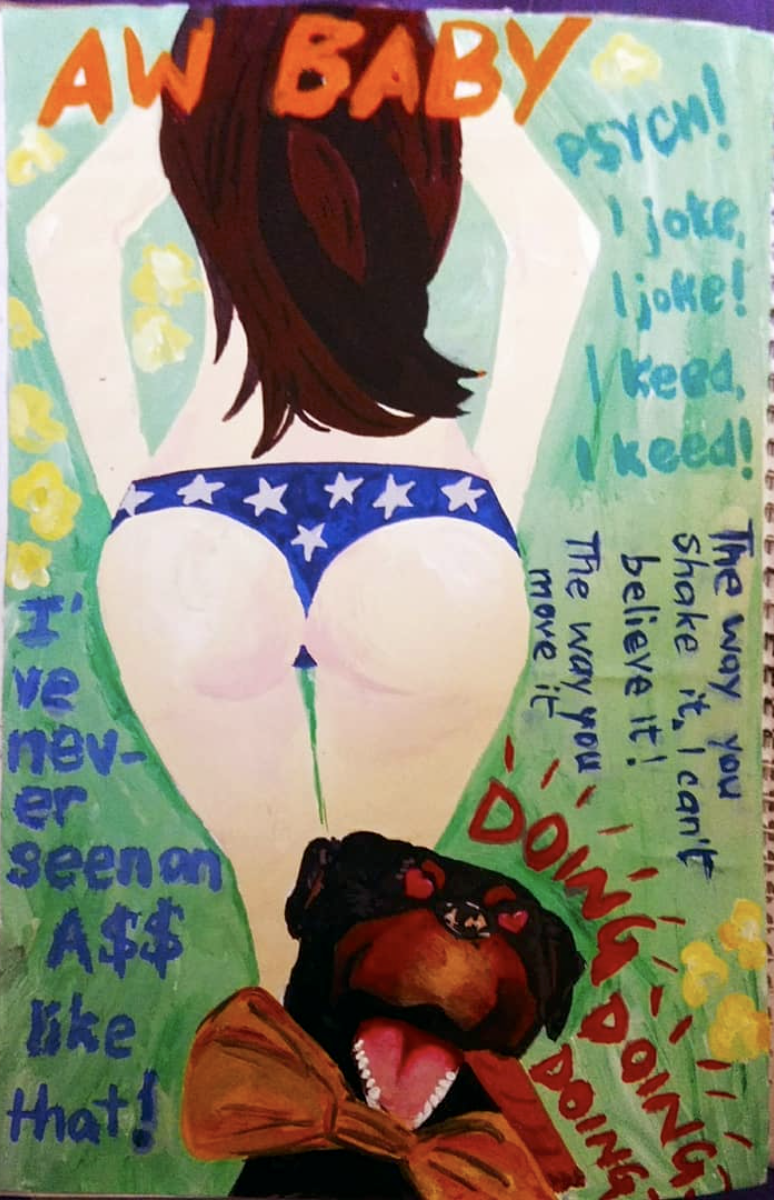 AW BABY
PSYCH!
I joke,
I joke!
I keed,
I keed!
The way you
shake it, I can't
believe it!
The way you
move it
I'
ve
nev-
er
seen an
A$$
like
that!
DOING
DOING
DOING